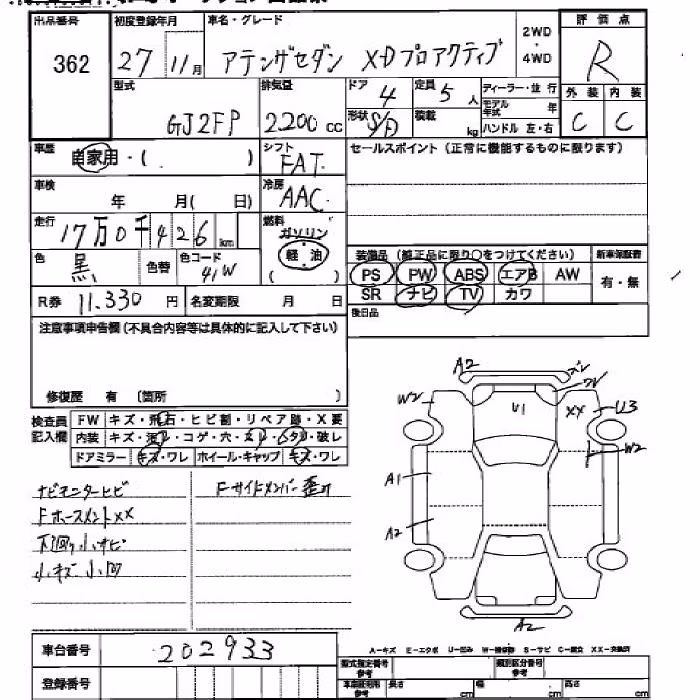 出品番号 初度登録年月 車名・グレード 2WD・4WD 評価点
362 27 11月 アテンザセダン XDプロアクティブ R
型式 排気量 ドア 定員 ディーラー・並行 外装 内装
GJ2FP 2200cc 4 5人 モデル年式 年 C C
形状 S/D 積載 kg ハンドル 左・右
車歴 自家用・( ) シフト FAT セールスポイント (正常に機能するものに限ります)
車検 年 月( 日) 冷房 AAC
走行 17万0千426km 燃料 ガソリン 軽油 ( )
色 黒 色替 色コード 41W 装備品 (純正品に限り○をつけてください) 新車保証書
PS PW ABS エアB AW 有・無
R券 11,330円 名変期限 月 日 SR ナビ TV カワ
注意事項申告欄 (不具合内容等は具体的に記入して下さい) 後日品
修復歴 有 〔箇所 〕
検査員記入欄 FW キズ・飛石・ヒビ割・リペア跡・X要
内装 キズ・汚レ・コゲ・穴・スレ・シタリ・破レ
ドアミラー キズ・ワレ ホイール・キャップ キズ・ワレ
A2
W2 U1 XX U3
W2
A1
A2
A2
ナビモニターヒビ Fサイドメンバー歪み
FホースメントXX
下廻り小サビ
小キズ 小凹
車台番号 202933
A-キズ E-エクボ U-凹み W-補修跡 S-サビ C-腐食 XX-交換済
登録番号 型式指定番号 参考 類別区分番号 参考
車庫証明用 参考 長さ cm 幅 cm 高さ cm